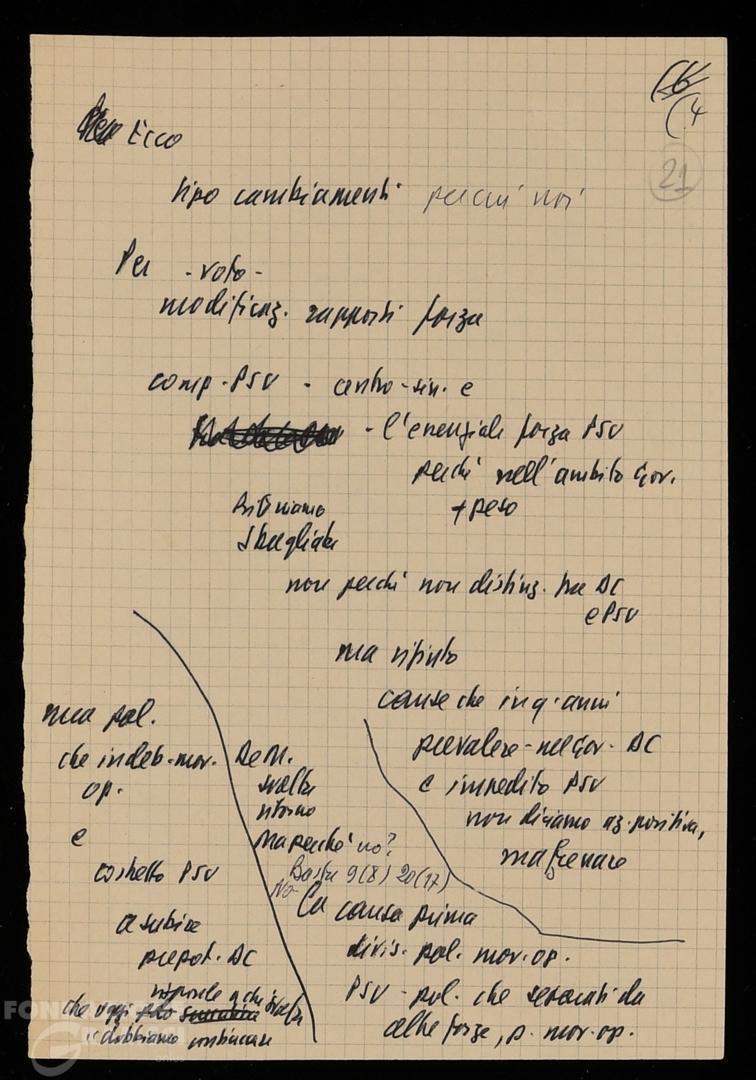 (4
21
Ecco
tipo cambiamenti perché noi
Per - voto -
modificaz. rapporti forza
comp. PSU - centro-sin. e
- l'essenziale forza PSU
perché nell'ambito Gov.
+ peso
Riteniamo
sbagliata
non perché non disting. tra DC
e PSU
ma rifiuto
cause che in q. anni
prevalere - nel Gov. DC
e impedito PSU
non diciamo az. positiva,
ma frenare
una pol.
che indeb. mov.
op.
e
costretto PSU
a subire
prepot. DC
che oggi
De M.
svolta
ritorno
Ma perché no?
Basta 9(8) 20(17)
No
La causa prima
divis. pol. mov. op.
PSU - pol. che separati da
altre forze, p. mov. op.